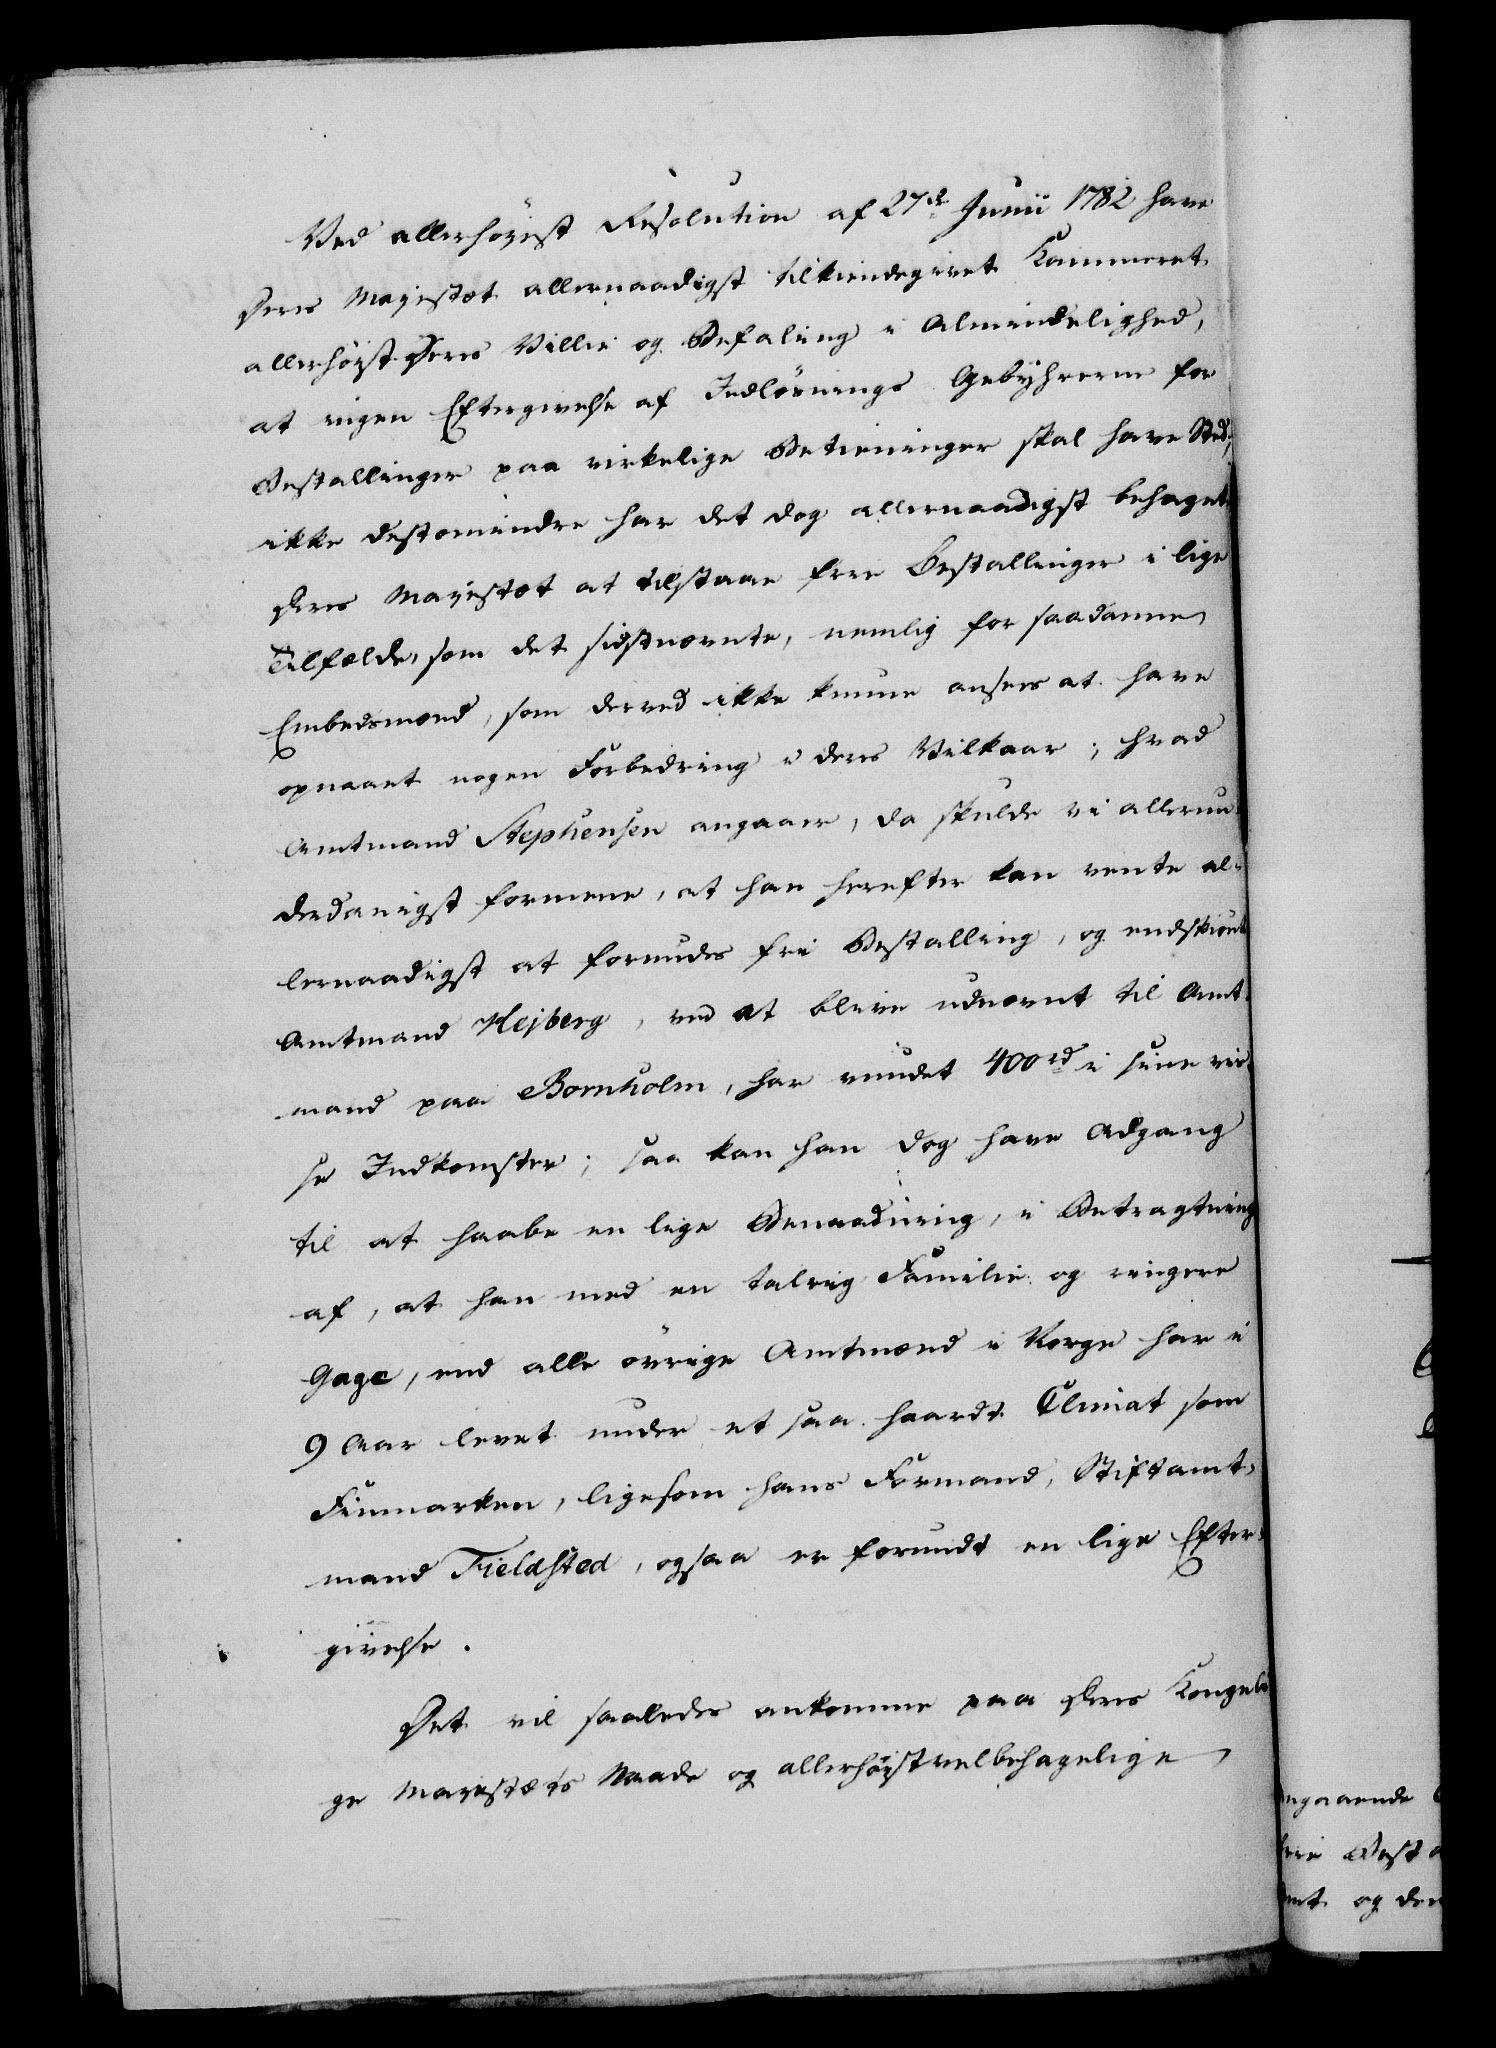 Ved allerhøyest Resolution af 27de Junii 1782 have
Deres Mayestæt allernaadigst tilkiendegivet Kammeret
allerhøyst Deres Villie og Befaling i Almindelighed,
at ingen Eftergivelse af Indløsnings Gebyhrerne for
Bestallinger paa virkelige Betieninger skal have Sted,
ikke destomindre har det dog allernaadigst behaget
Deres Mayestæt at tilstaae frie Bestallinger i lige
Tilfælde, som det sidstnævnte, nemlig for saadanne
Embedsmænd, som derved ikke kunne ansees at have
opnaaet nogen Forbedring i deres Vilkaar; hvad
Amtmand Stephensen angaaer, da skulde vi allerun-
derdanigst formene, at han herefter kan vente al-
lernaadigst at forundes frie Bestalling, og endskiønt
Amtmand Hejberg, ved at blive udnævnt til Amt-
mand paa Bornholm, har vundet 400 rd i sine vis-
se Indkomster; saa kan han dog have Adgang
til at haabe en lige Benaadning, i Betragtning
af, at han med en talrig Familie og ringere
Gage, end alle øvrige Amtmænd i Norge har i
9 Aar levet under et saa haardt Climat som
Finmarken, ligesom hans Formand, Stiftamt-
mand Fieldsted, ogsaa er forundt en lige Efter-
givelse.
Det vil saaledes ankomme paa Deres Kongeli-
ge Mayestæts Naade og allerhøystvelbehagelige
angaaende
frie Best
og den